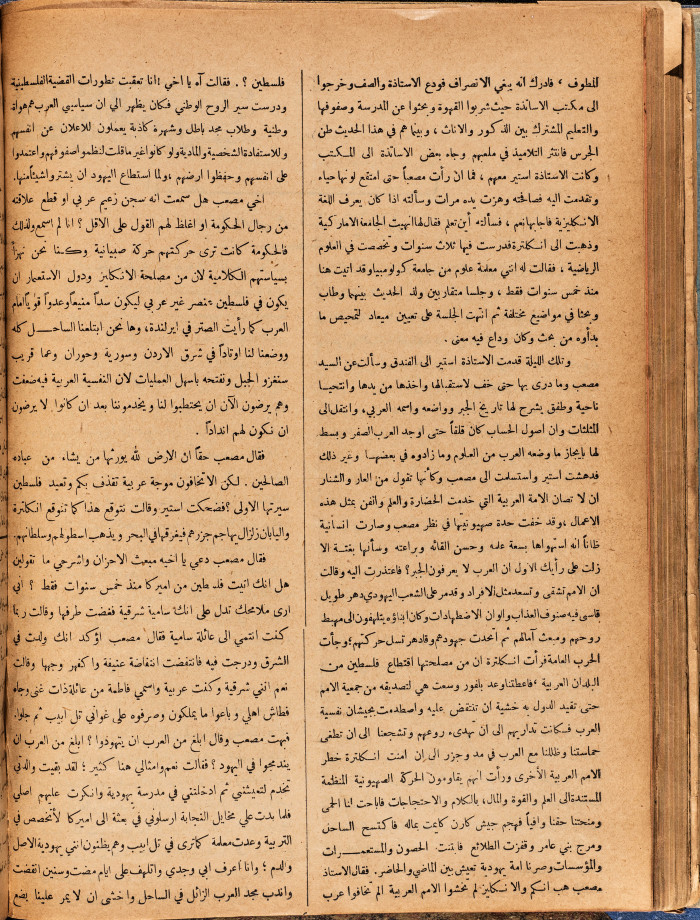 المطوف ، فادرك انه يبغي الانصراف فودع الاستاذة والصف وخرجوا
الى مكتب الاساتذة حيث شربوا القهوة وبحثوا عن المدرسة وصفوفها
والتعليم المشترك بين الذكور والاناث ، وبينما هم في هذا الحديث طن
الجرس فانتثر التلاميذ في ملعبهم وجاء بعض الاساتذة الى المكتب
وكانت الاستاذة استير معهم ، فما ان رأت مصعباً حتى امتقع لونها حياء
وتقدمت اليه فصافحته وهزت يده مرات وسألته اذا كان يعرف اللغة
الانكليزية فاجابها نعم ، فسألته أين تعلم فقال لها انهيت الجامعة الاماركية
وذهبت الى انكلترة فدرست فيها ثلاث سنوات وتخصصت في العلوم
الرياضية ، فقالت له انني معلمة علوم من جامعة كولومبيا وقد اتيت هنا
منذ خمس سنوات فقط ، وجلسا متقاربين ولذ الحديث بينهما وطاب
وبحثا في مواضيع مختلفة ثم انتهت الجلسة على تعيين ميعاد لتمحيص ما
بدأوه من بحث وكان وداع فيه معنى .
وتلك الليلة قدمت الاستاذة استير الى الفندق وسألت عن السيد
مصعب وما درى بها حتى خف لاستقبالها واخذها من يدها وانتحيا
ناحية وطفق يشرح لها تاريخ الجبر وواضعه واسمه العربي، وانتقل الى
المثلثات وان اصول الحساب كان قلقاً حتى اوجد العرب الصفر وبسط
لها بايجاز ما وضعه العرب من العلوم وما زادوه في بعضها وغير ذلك
فدهشت استير واستسلمت الى مصعب وكأنها تقول من العار والشنار
ان لا تصان الامة العربية التي خدمت الحضارة والعلم والفن بمثل هذه
الاعمال ، وقد خفت حدة صهيونيتها في نظر مصعب وصارت انسانية
ظاناً انه استهواها بسعة علمه وحسن القائه وبراعته وسألها بغتة الا
زلت على رأيك الاول ان العرب لا يعرفون الجبر؟ فاعتذرت اليه وقالت
ان الامم تشقى وتسعد مثل الافراد وقد مر على الشعب اليهودي دهر طويل
قاسى فيه صنوف العذاب والوان الاضطهادات وكان ابناؤه يتلهفون الى مهبط
روحهم ومبعث آمالهم ثم اتحدت جهودهم وقادهر تسل حركتهم؛ وجأت
الحرب العامة فرأت انكلترة ان من مصلحتها اقتطاع فلسطين من
البلدان العربية ، فاعطتنا وعد بلفور وسعت هي لتصديقه من جمعية الامم
حتى تقيد الدول به خشية ان تنتقض عليه واصطدمت بجيشان نفسية
العرب فكانت تداريهم الى ان تهدىء روعهم وتشجعنا الى ان تطفى
حماستنا وظللنا مع العرب في مد وجزر الى ان امنت انكلترة خطر
الامم العربية الأخرى ورأت انهم يقاومون الحركة الصهيونية المنظمة
المستندة الى العلم والقوة والمال، بالكلام والاحتجاجات فاباحت لنا الحمى
ومنحتنا حقنا وافياً فهجم جيش كارن كايمت بماله فاكتسح الساحل
ومرج بني عامر وقفزت الطلائع فابتنت الحصون والمستعمرات
والمؤسسات وصرنا امة يهودية تعيش بين الماضي والحاضر. فقال الاستاذ
مصعب هب انكم والانكليز لم تخشوا الامم العربية الم تخافوا عرب
فلسطين ؟ . فقالت آه يا اخي ! انا تعقبت تطورات القضية الفلسطينية
ودرست سير الروح الوطني فكان يظهر الي ان سياسيي العرب هم هواة
وطنية وطلاب مجد باطل وشهرة كاذبة يعملون للاعلان عن انفسهم
وللاستفادة الشخصية والمادية ولو كانوا غير ما قلت لنظموا صفوفهم واعتمدوا
على انفسهم وحفظوا ارضهم ، ولما استطاع اليهود ان يشتروا شيئاً منها.
اخي مصعب هل سمعت انه سجن زعيم عربي او قطع علاقته
من رجال الحكومة او اغلظ لهم القول على الاقل ؟ انا لم اسمع ولذلك
فالحكومة كانت ترى حركتهم حركة صبيانية وكنا نحن نهزأ
بسياستهم الكلامية لان من مصلحة الانكليز ودول الاستعمار ان
يكون في فلسطين عنصر غير عربي ليكون سداً منيعاً وعدواً قوياً امام
العرب كما رأيت الصتر في ايرلندة، وها نحن ابتلعنا الساحل كله
ووضعنا لنا اوتاداً في شرق الاردن وسورية وحوران وعما قريب
سنغزو الجبل ونفتحه باسهل العمليات لان النفسية العربية فيه ضعفت
وهم يرضون الآن ان يحتطبوا لنا ويخدموننا بعد ان كانوا لا يرضون
ان نكون لهم انداداً .
فقال مصعب حقاً ان الارض لله يورثها من يشاء من عباده
الصالحين . لكن الا تخافون موجة عربية تقذف بكم وتعيد فلسطين
سيرتها الاولى ؟ فضحكت استير وقالت نتوقع هذا كما تتوقع انكلترة
واليابان زلزال يهاجم جزرهم فيغرقها في البحر ويذهب اسطولهم وسلطانهم.
فقال مصعب دعي يا اخيه مبعث الاحزان واشرحي ما تقولين
هل انك اتيت فلسطين من اميركا منذ خمس سنوات فقط ؟ اني
ارى ملامحك تدل على انك سامية شرقية فغضت طرفها وقالت ربما
كنت انتمي الى عائلة سامية فقال مصعب اؤكد انك ولدت في
الشرق ودرجت فيه فانتفضت انتفاضة عنيفة واكفهر وجهها وقالت
نعم انني شرقية وكنت عربية واسمي فاطمة من عائلة ذات غنى وجاه
فطاش اهلي وباعوا ما يملكون وصرفوه على غواني تل ابيب ثم جلوا.
فبهت مصعب وقال ابلغ من العرب ان يتهودوا ؟ ابلغ من العرب ان
يندمجوا في اليهود ؟ فقالت نعم وامثالي هنا كثير ؛ لقد بقيت والدتي
تخدم لتعيشني ثم ادخلتني في مدرسة يهودية وانكرت عليهم اصلي
فلما بدت علي مخايل النجابة ارسلوني في بعثة الى اميركا لأتخصص في
التربية وعدت معلمة كما ترى في تل ابيب وهم يظنون انني يهودية الاصل
والدم ؛ وانا أعرف ابي وجدي واتلهف على ايام مضت وسنين انقضت
واندب مجد العرب الزائل في الساحل واخشى ان لا يمر علينا بضع